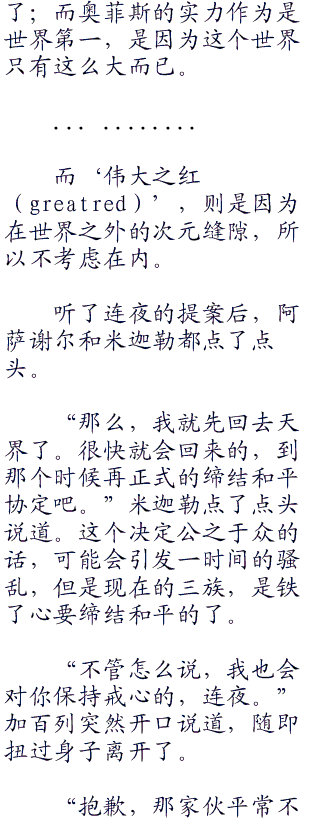 了；而奥菲斯的实力作为是
世界第一，是因为这个世界
只有这么大而已。
... ........
而‘伟大之红
（greatred）’，则是因为
在世界之外的次元缝隙，所
以不考虑在内。
听了连夜的提案后，阿
萨谢尔和米迦勒都点了点
头。
“那么，我就先回去天
界了。很快就会回来的，到
那个时候再正式的缔结和平
协定吧。”米迦勒点了点头
说道。这个决定公之于众的
话，可能会引发一时间的骚
乱，但是现在的三族，是铁
了心要缔结和平的了。
“不管怎么说，我也会
对你保持戒心的，连夜。”
加百列突然开口说道，随即
扭过身子离开了。
“抱歉，那家伙平常不